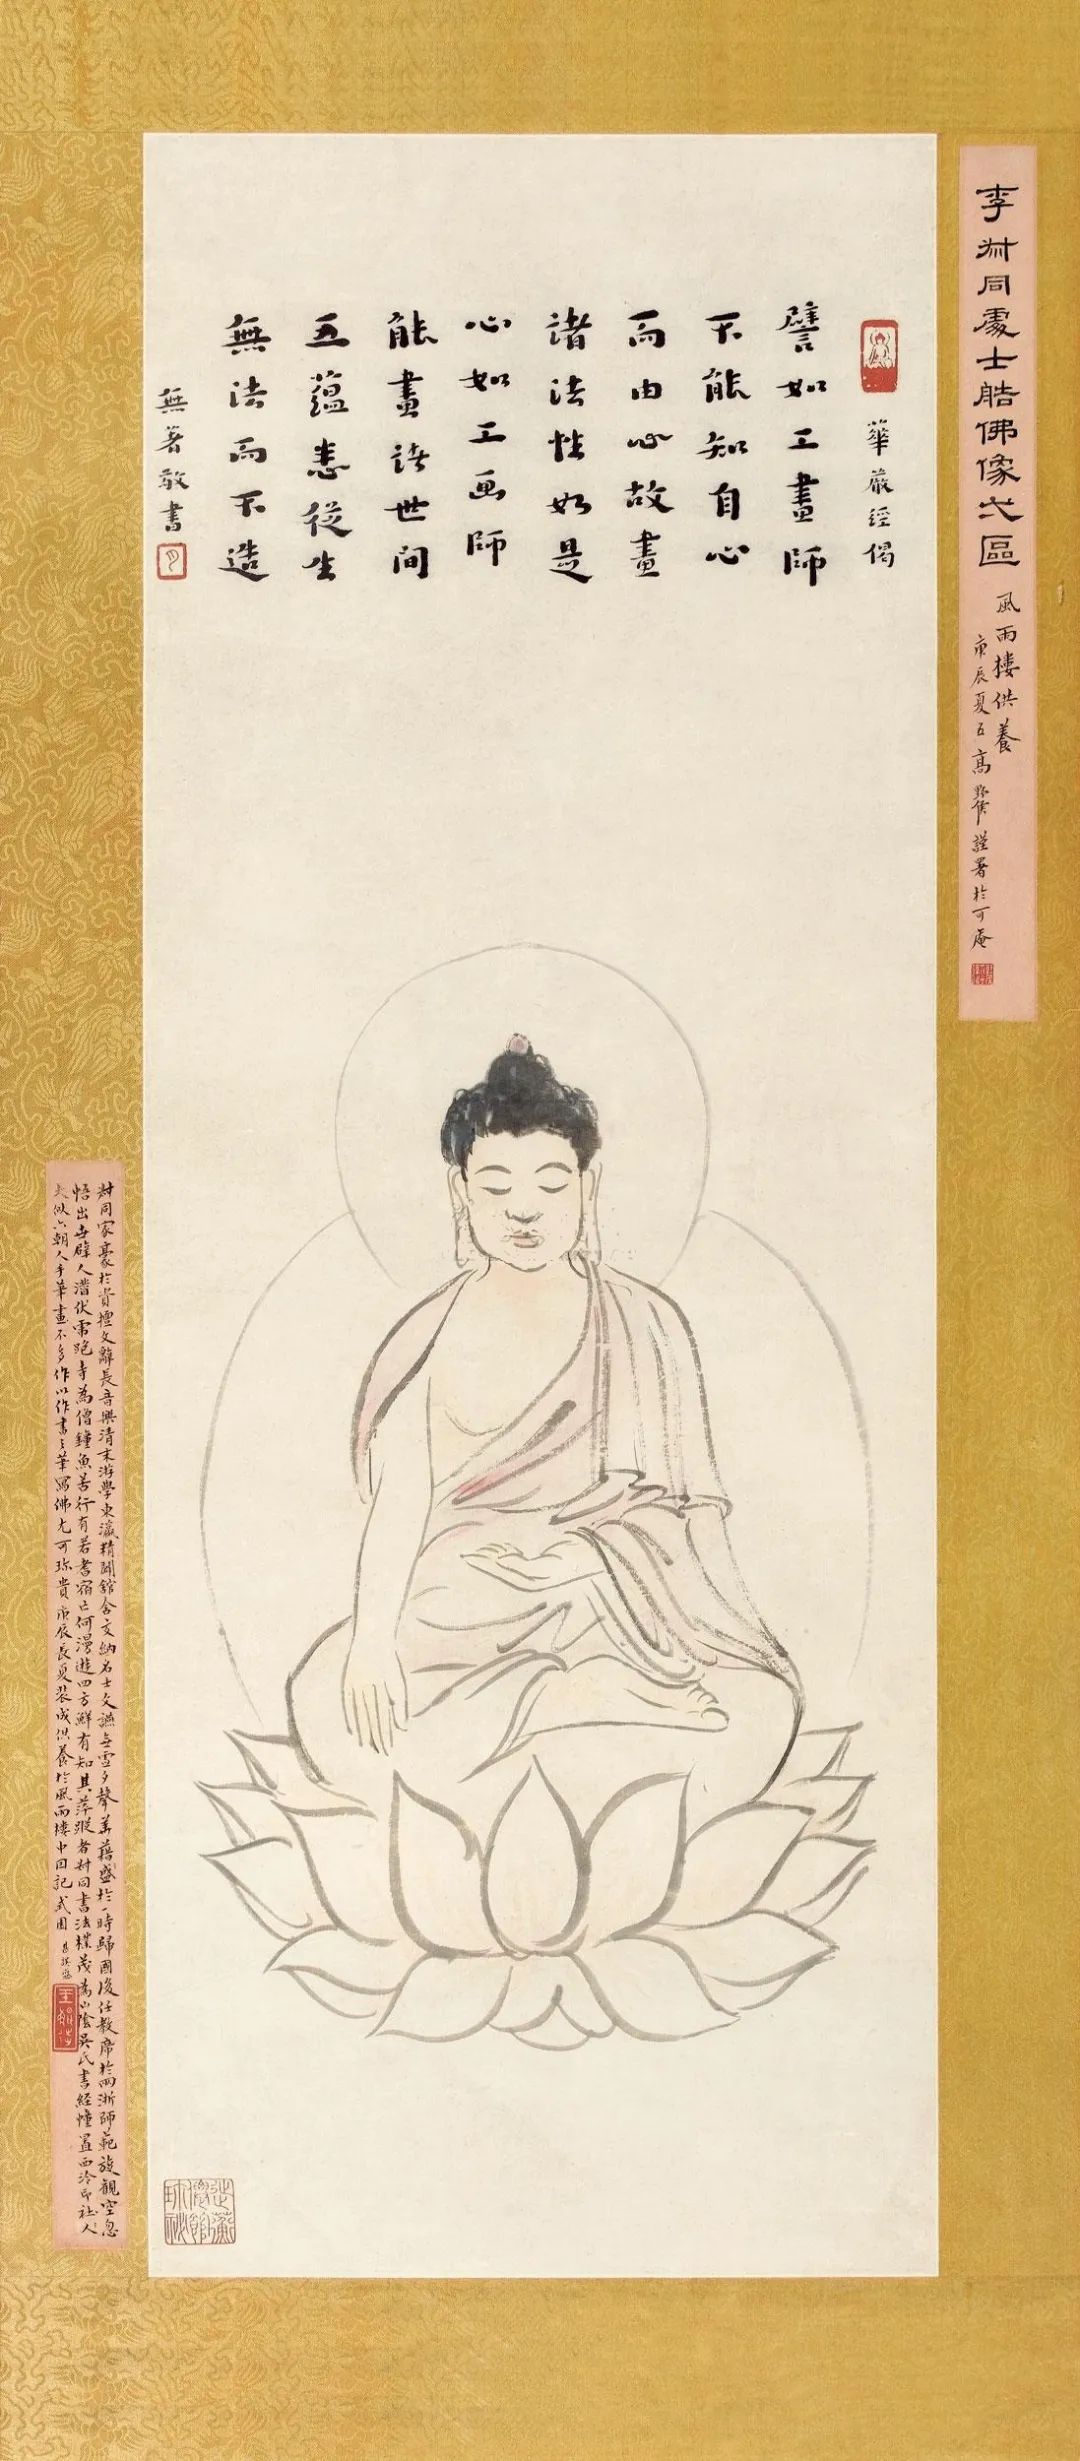 李叔同處士皓佛像弌區
風雨樓供養
庚辰夏五高野侯謹署於可庵
華嚴經偈
譬如工畫師
不能知自心
而由心故畫
諸法性如是
心如工画師
能畫諸世間
五蘊悉從生
無法而不造
無著敬書
叔同家豪於貲擅文辭長音樂清末游學東瀛精
交納名士文讌無虛夕聲華藉盛於一時歸國後任教席於兩浙師範旋觀空忽
悟出世辟人潛伏虎跑寺為僧鐘魚苦行有若耆宿亡何漫遊四方鮮有知其萍蹤者叔同書法樸茂為山陰吳氏書經幢置西泠印社人
六朝人手筆畫不多作以作書之筆寫佛尤可珍貴庚辰長夏裝成供養於風雨樓中因記